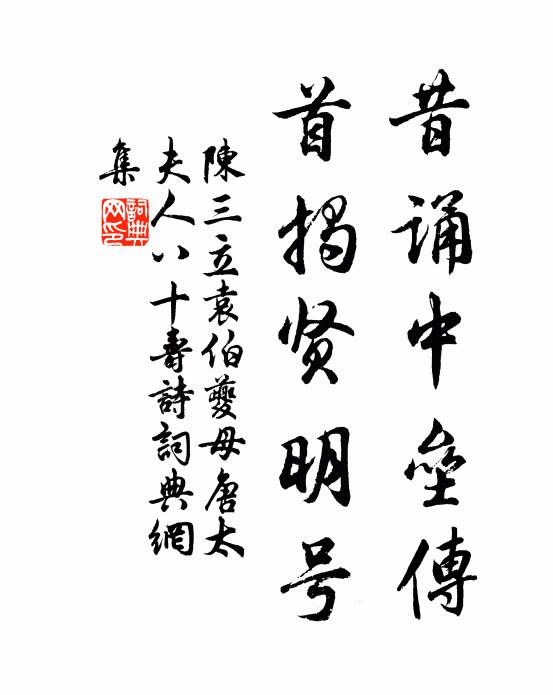 昔诵中壘傳
首揭贤明号
陳三立袁伯夔母唐太
夫人八十壽詩詞典網
集
詞典网印